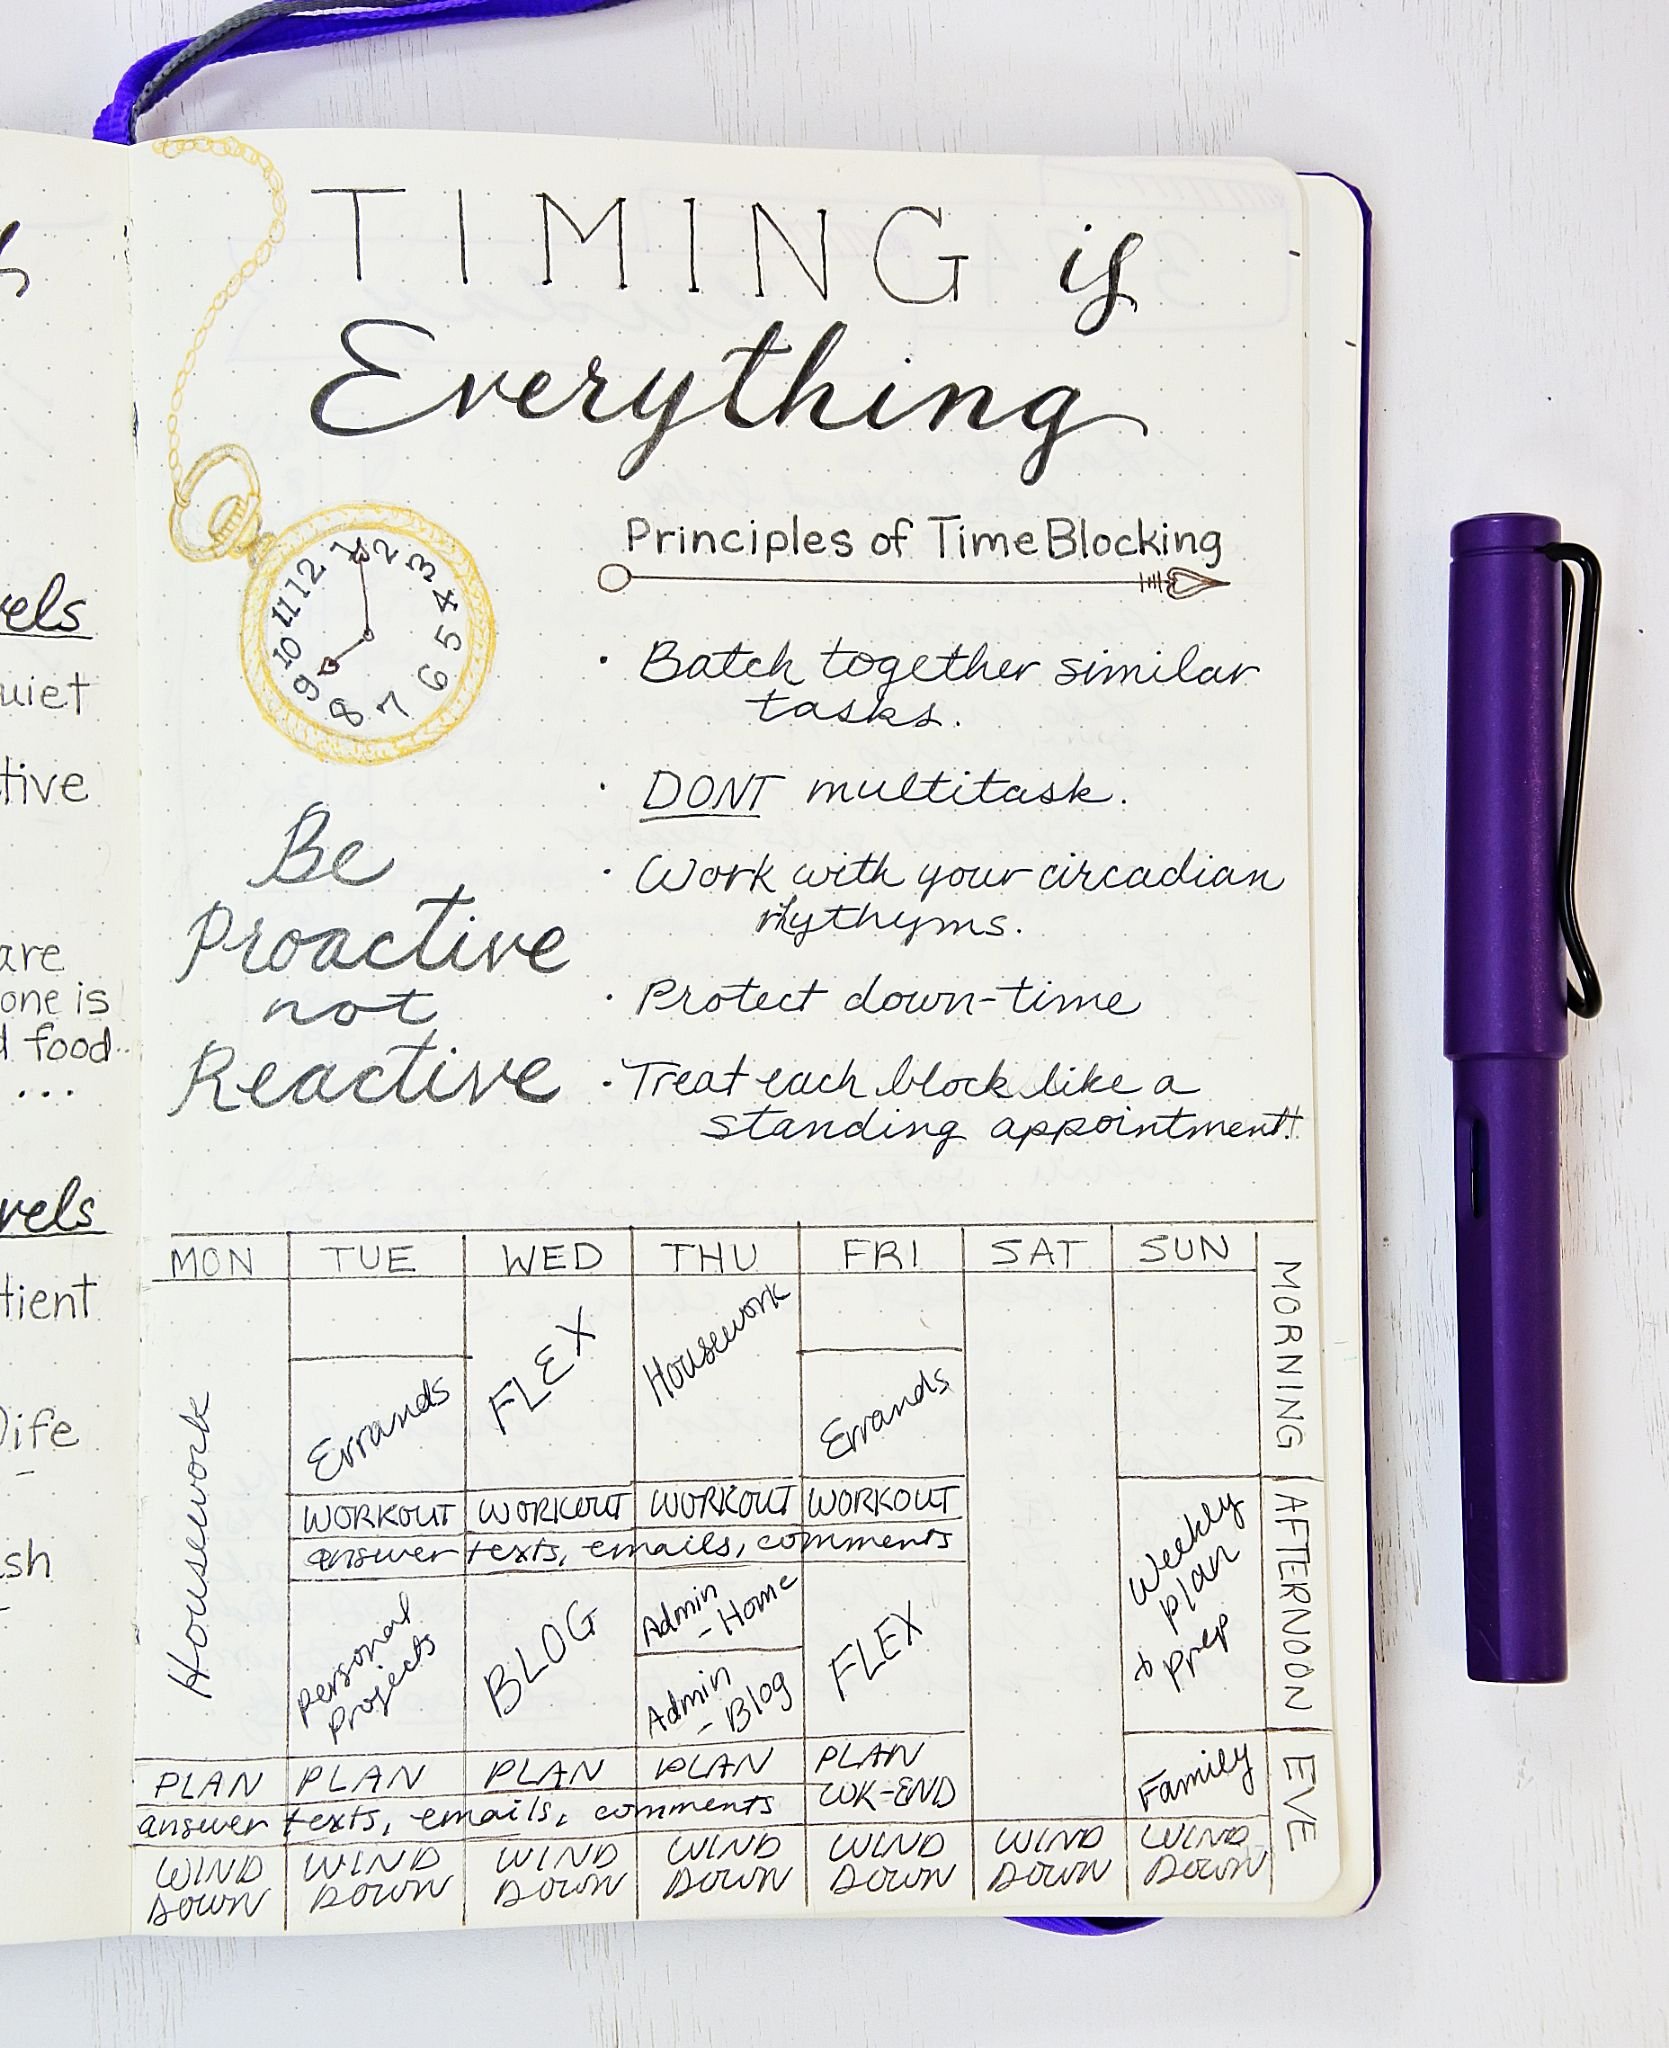 uiet
tive
are
one is
food..
...
tient
ish
TIMING is
Everything
1 2 3 4 5 6 7 8 9 10 11 12
Principles of Time Blocking
· Batch together similar
tasks.
· DONT multitask.
· Work with your circadian
rhythyms.
· Protect down-time
· Treat each block like a
standing appointment!
Be
Proactive
not
Reactive
MON TUE WED THU FRI SAT SUN
MORNING
Housework
Errands
FLEX
Housework
Errands
WORKOUT WORKOUT WORKOUT WORKOUT
answer texts, emails, comments
AFTERNOON
Personal
Projects
BLOG
Admin
- Home
Admin
- Blog
FLEX
Weekly
plan
& prep
PLAN PLAN PLAN PLAN PLAN
WK-END
answer texts, emails, comments
Family
EVE
WIND WIND WIND WIND WIND WIND WIND
DOWN DOWN DOWN DOWN DOWN DOWN DOWN